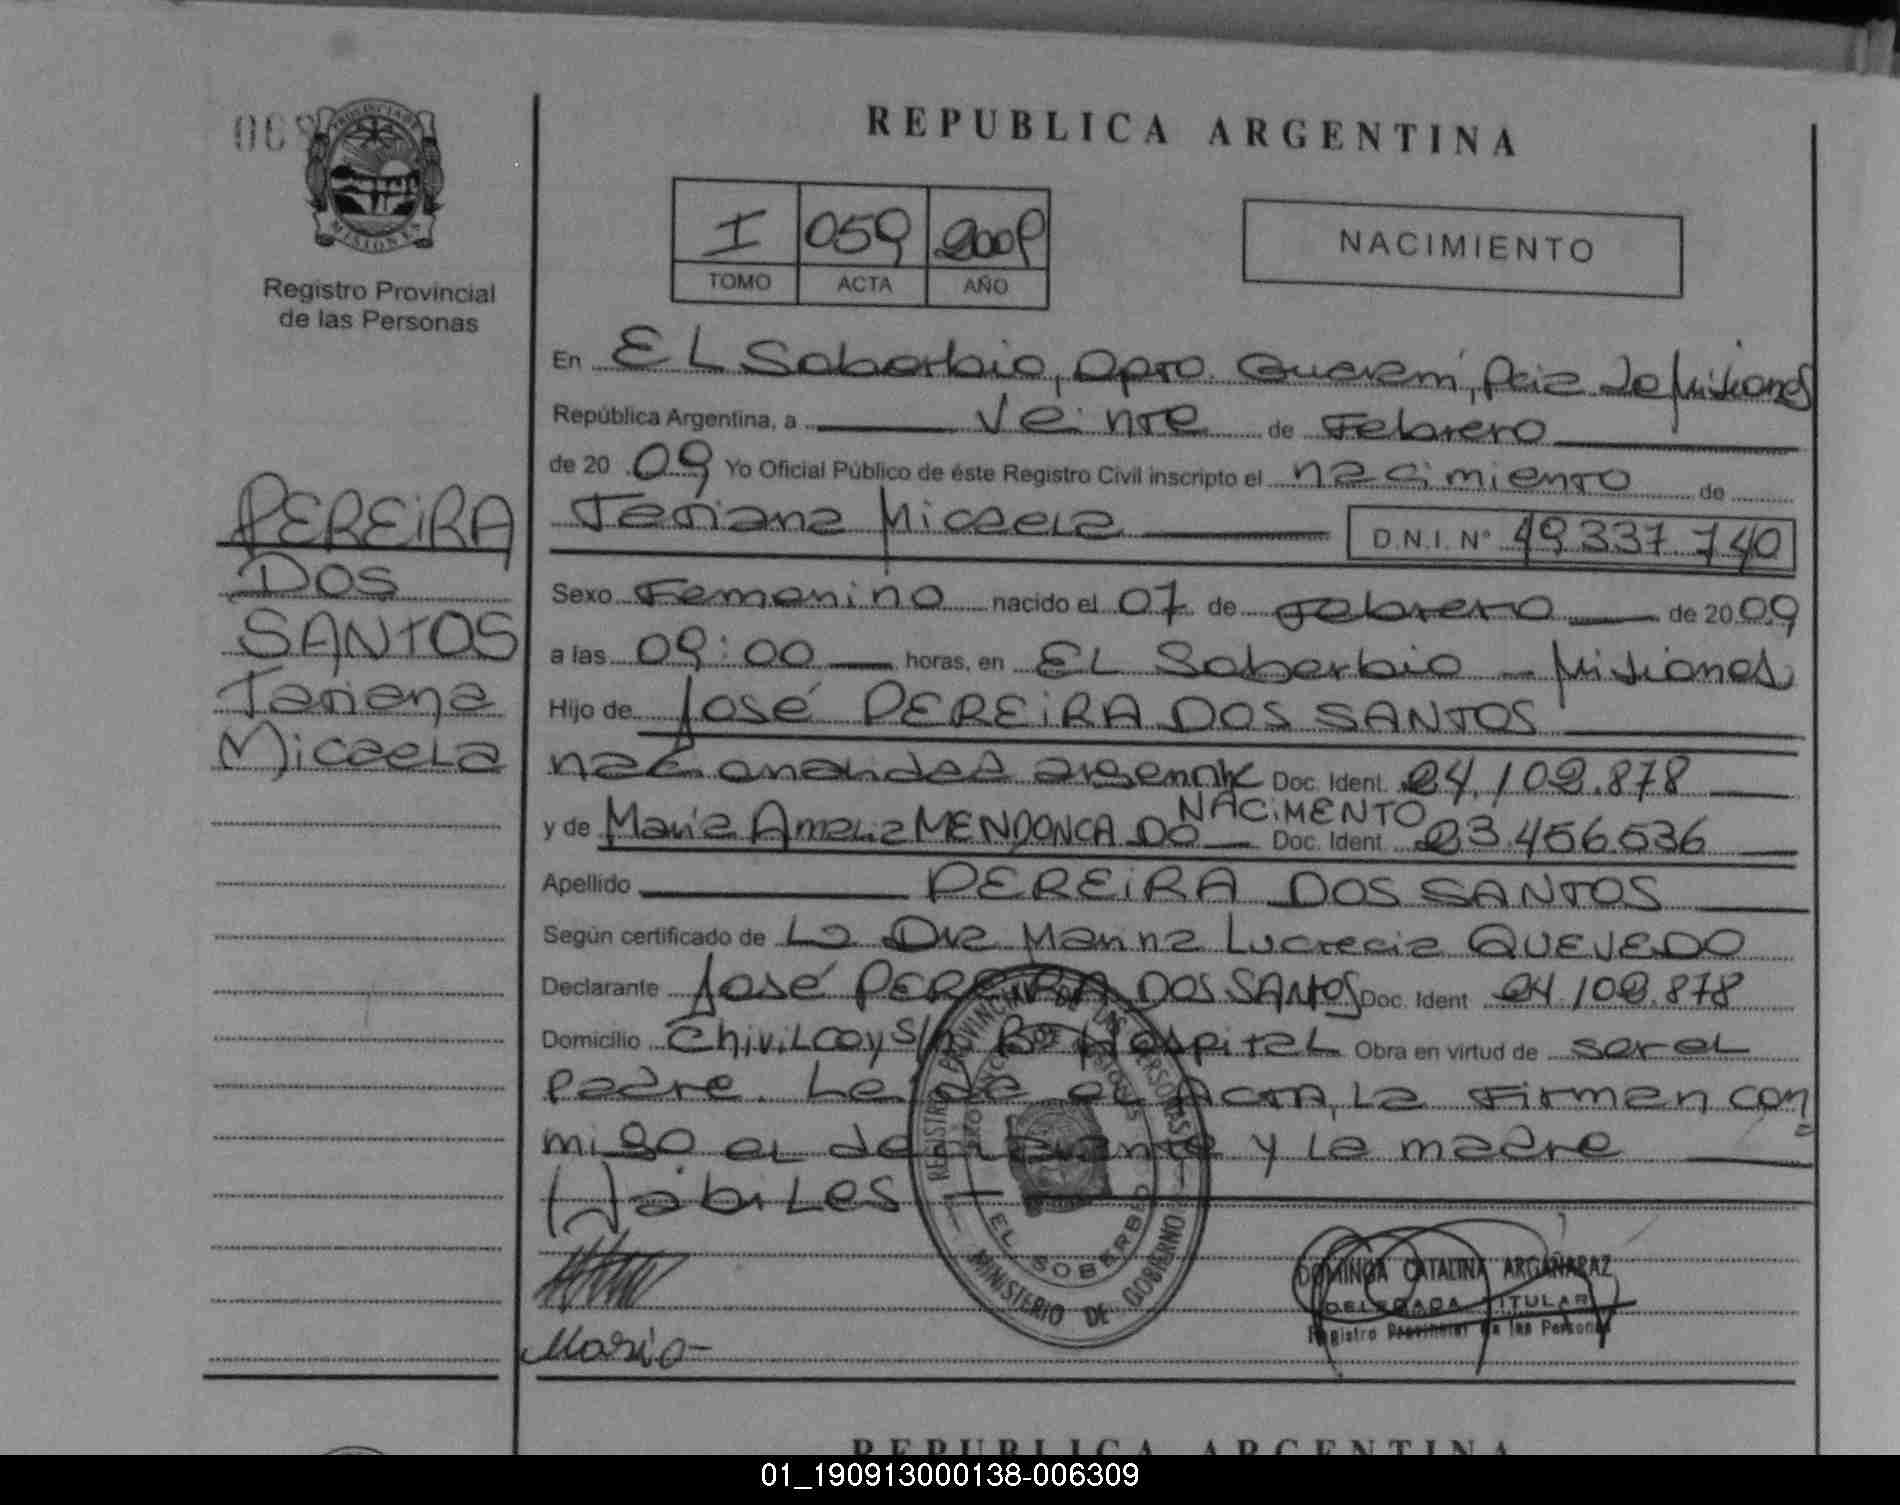 REPUBLICA ARGENTINA
PROVINCIA DE
MISIONES
Registro Provincial
de las Personas
I 059 2009
TOMO ACTA AÑO
NACIMIENTO
En EL Soberbio, Dpto. Guaraní, Pcia de Misiones
República Argentina, a Veinte de Febrero
de 20 09 Yo Oficial Público de éste Registro Civil inscripto el nacimiento de
Micaela D.N.I. N° 49.337.740
PEREIRA
DOS
SANTOS
Micaela
Sexo Femenino nacido el 07 de Febrero de 20 09
a las 09:00 horas, en EL Soberbio - Misiones
Hijo de José PEREIRA DOS SANTOS
nacionalidad argentina Doc. Ident. 24.102.878
y de María Amelia MENDONCA DO NACIMENTO Doc. Ident. 23.456.536
Apellido PEREIRA DOS SANTOS
Según certificado de La Dra Marina Lucrecia QUEVEDO
Declarante José PEREIRA DOS SANTOS Doc. Ident 24.102.878
Domicilio Chivilcoy s/n Bo Hospital Obra en virtud de ser el
padre. Leída el Acta, la firman con
migo el declarante y la madre
Hábiles
REGISTRO PROVINCIAL DE LAS PERSONAS
MINISTERIO DE GOBIERNO
EL SOBERBIO
DOMINGA CATALINA ARGAÑARAZ
DELEGADA TITULAR
Registro Provincial de las Personas
Maria
REPUBLICA ARGENTINA
01_190913000138-006309